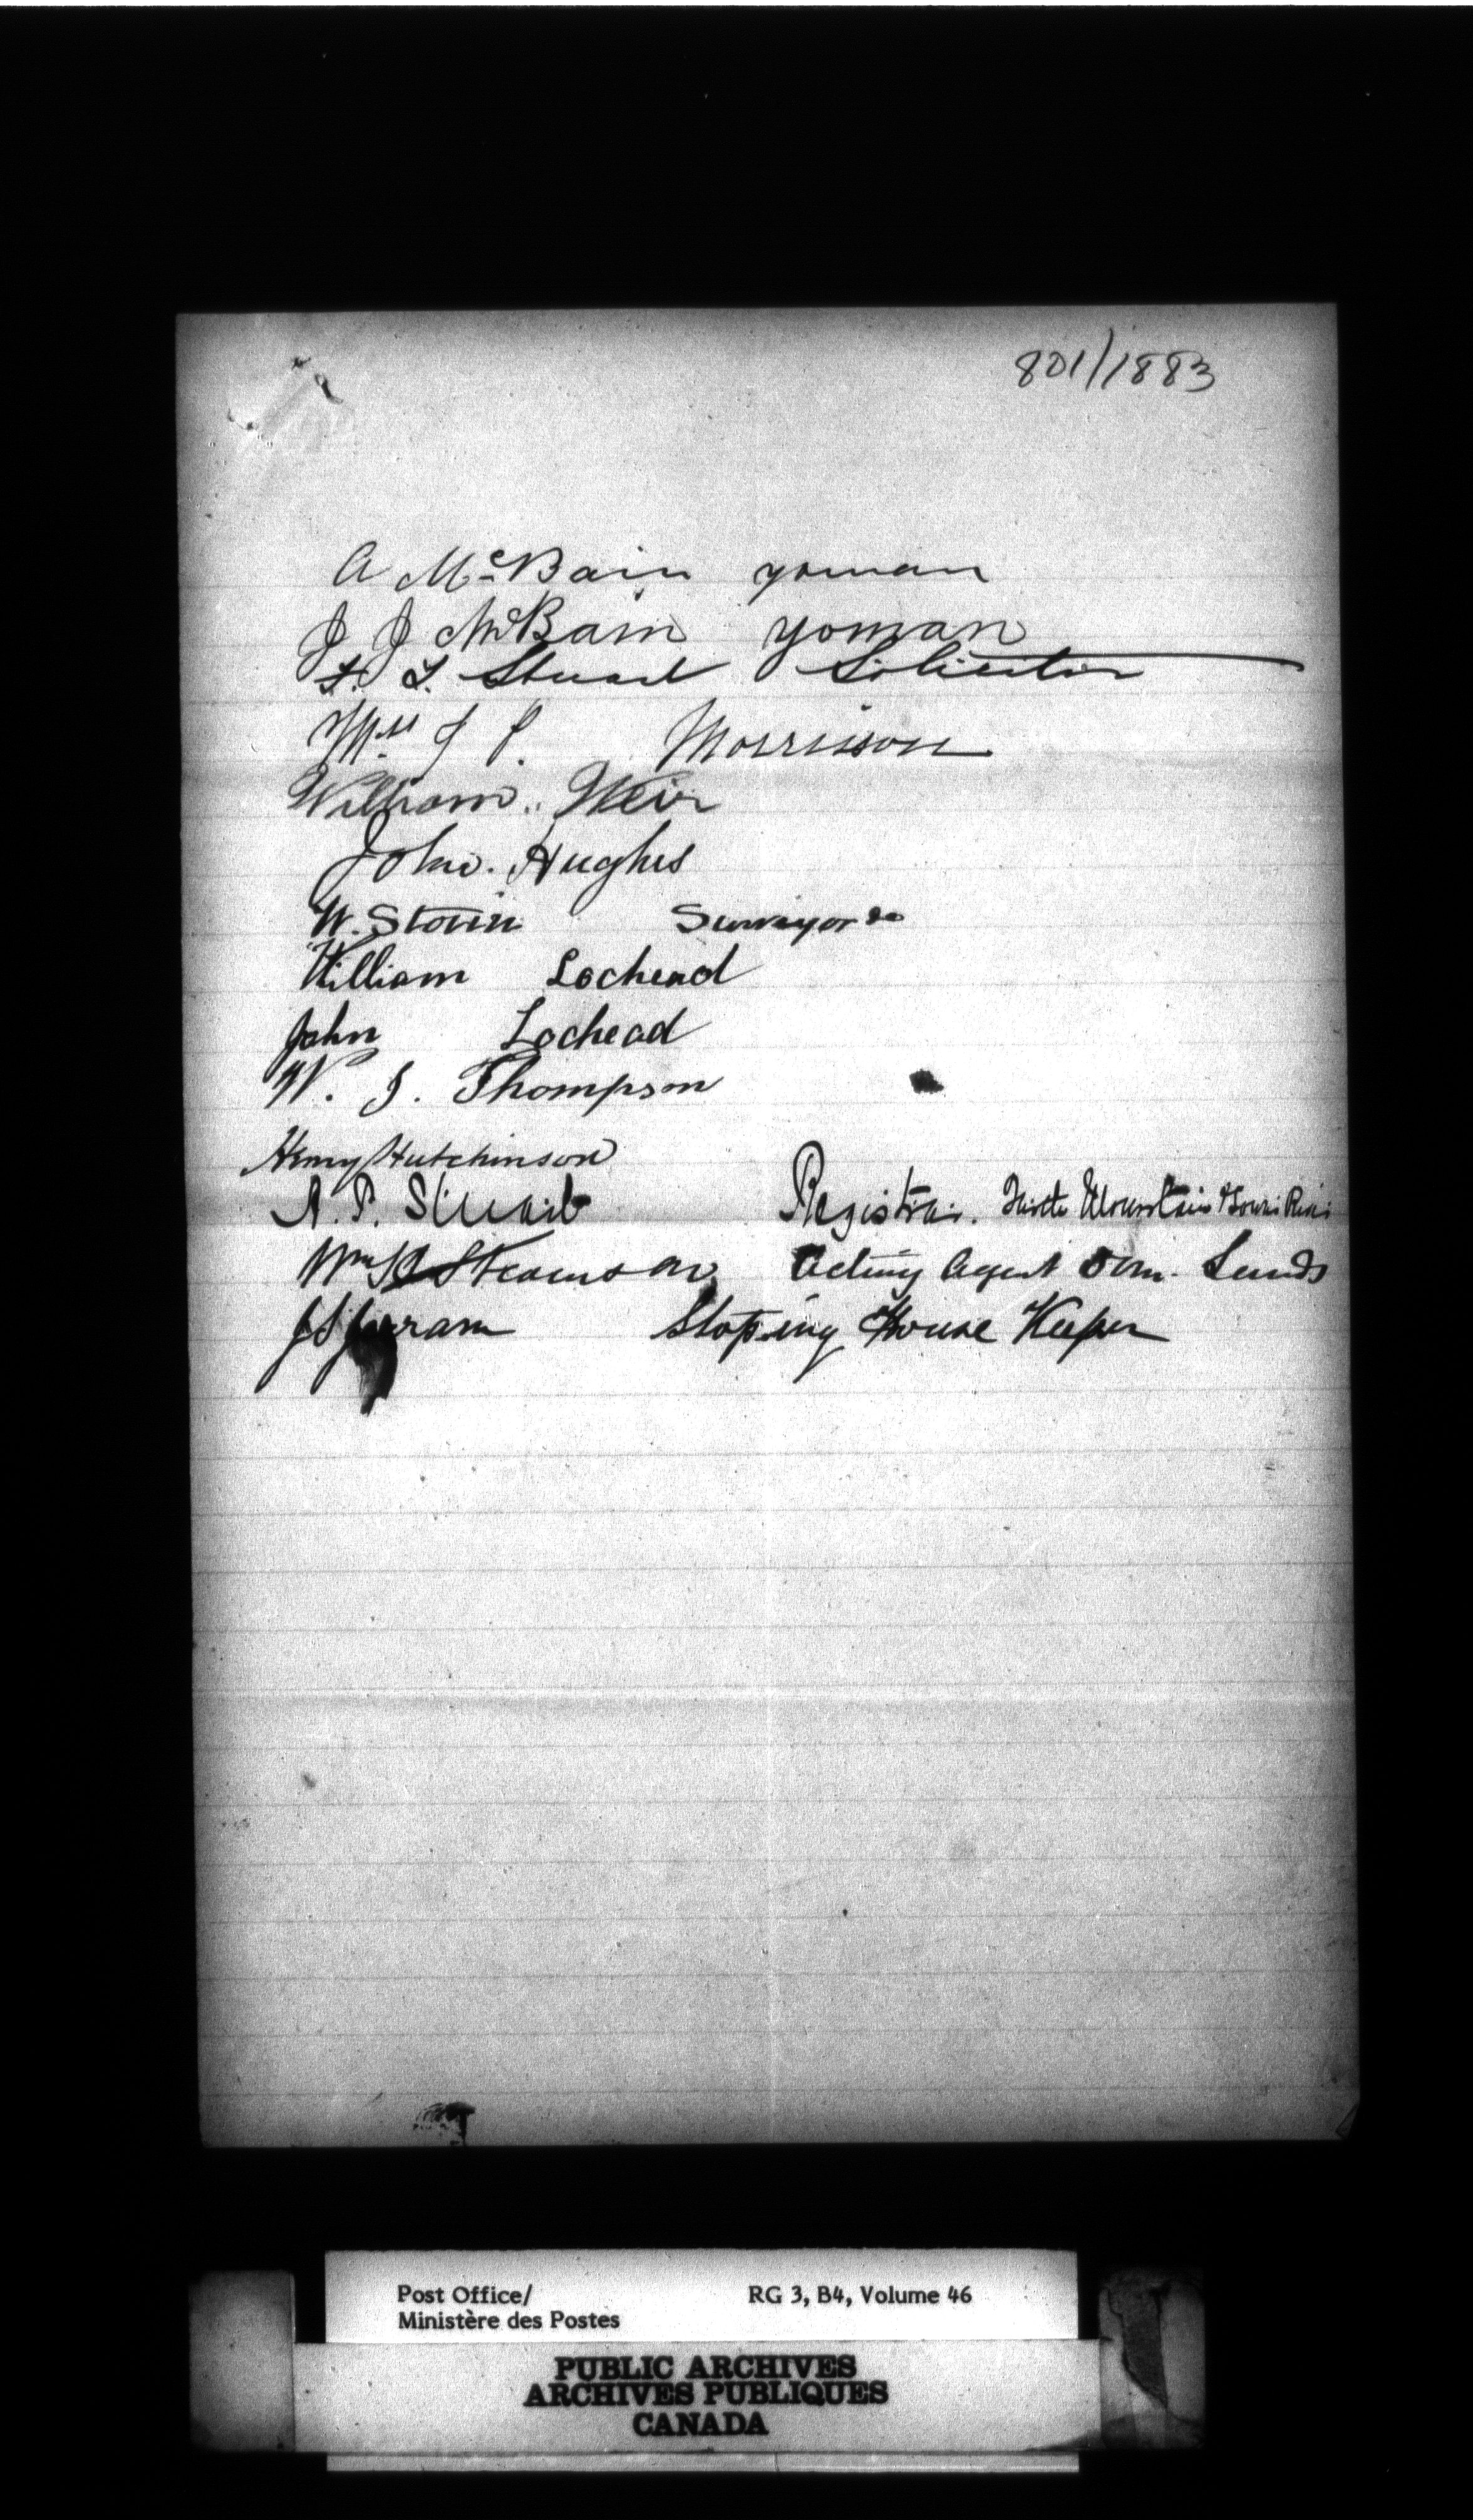 801/1883
A McBain yoman
J J McBain yoman
F. L. Stuart Solicitor
J P. Morrison
William Weir
John. Hughes
W. Surveyor
William Lochead
John Lochead
W. J. Thompson
Henry Hutchinson
A. P. Stuart Registrar. Turtle Mountain & Souris River
Wm Acting Agent Dom. Lands
Stoping House Keeper
Post Office/ RG 3, B4, Volume 46
Ministère des Postes
PUBLIC ARCHIVES
ARCHIVES PUBLIQUES
CANADA